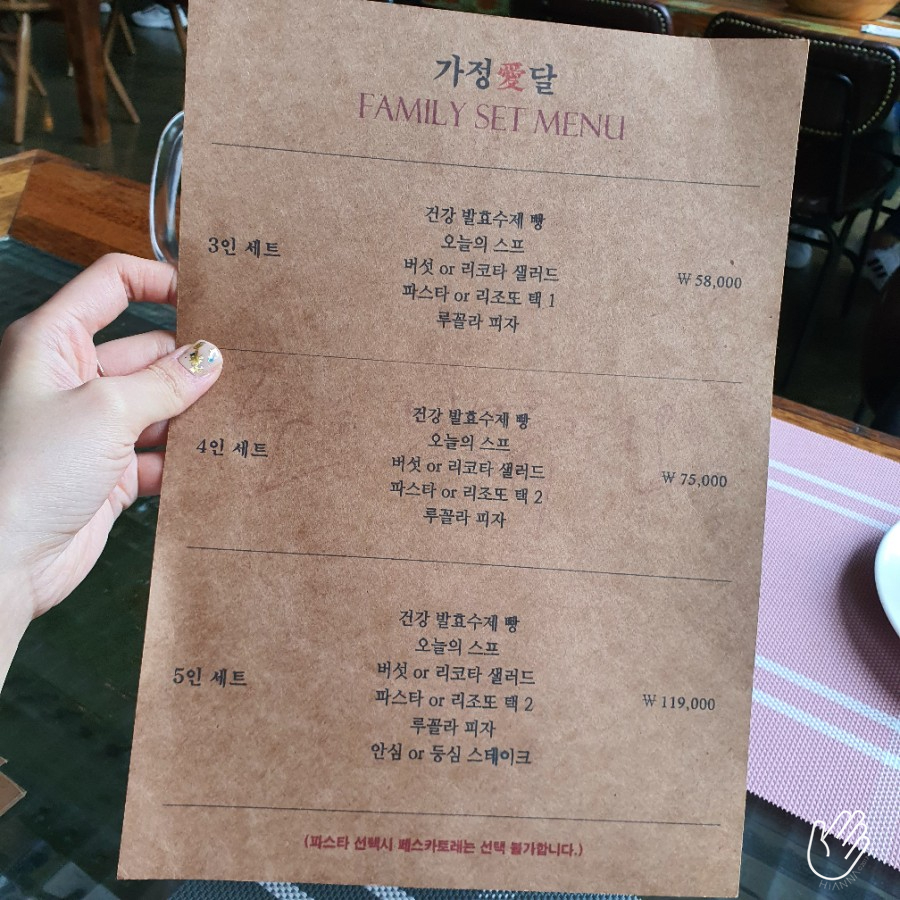 가정愛달
FAMILY SET MENU
3인 세트
건강 발효수제 빵
오늘의 스프
버섯 or 리코타 샐러드
파스타 or 리조또 택 1
루꼴라 피자
₩ 58,000
4인 세트
건강 발효수제 빵
오늘의 스프
버섯 or 리코타 샐러드
파스타 or 리조또 택 2
루꼴라 피자
₩ 75,000
5인 세트
건강 발효수제 빵
오늘의 스프
버섯 or 리코타 샐러드
파스타 or 리조또 택 2
루꼴라 피자
안심 or 등심 스테이크
₩ 119,000
(파스타 선택시 페스카토레는 선택 불가합니다.)
HIANNA